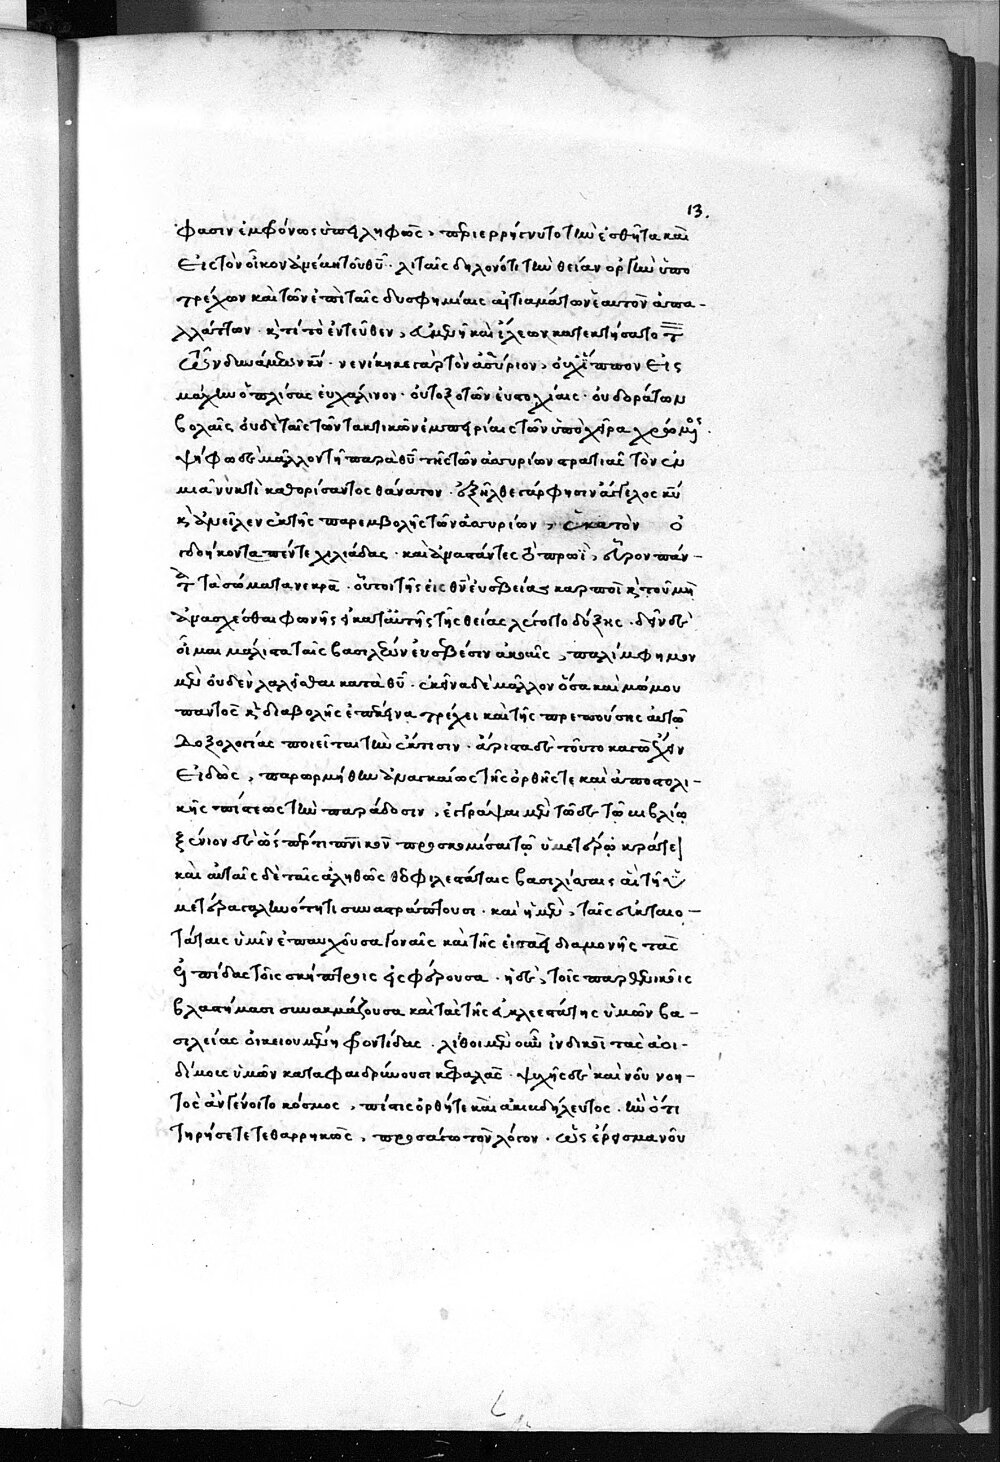 13.
φασιν ἐμφόνως ὑπειληφὼς, περιερρήγνυτο τὴν ἐσθῆτα καὶ
εἰς τὸν οἶκον ἀνέει τοῦ θυ. λιταῖς δηλονότι τὴν θείαν ὀργὴν ὑπο
τρέχων καὶ τῶν ἐπὶ ταῖς δυσφημίαις αἰτιαμάτων ἑαυτὸν ἀπα-
λλάττων. κ τί τὸ ἐντεῦθεν,
δυνάμεων κν. νενίκηκε γὰρ τὸν ἀσύριον, οὐχ ἵππον εἰς
μάχην ὁπλίσας εὐχάλινον. οὐ τοξοτῶν εὐστοχίαις. οὐ δοράτων
βολαῖς, οὐδὲ ταῖς τῶν τακτικῶν ἐμπειρίαις τῶν ὑπὸ χεῖρα
ψήφω δὲ μᾶλλον τῆ παρὰ θυ τῆς τῶν ἀσυρίων στρατιᾶς τὸν ἐν
μιᾶ νυκτὶ καθορίσαντος θάνατον. ἐξῆλθε γάρ φησιν ἄγγελος κυ
κ ἀνεῖλεν ἐκ τῆς παρεμβολῆς τῶν ἀσυρίων, ἑκατὸν ὀ
γδοήκοντα πέντε χιλιάδας. καὶ ἀναστάντες τὸ πρωῒ, εὗρον πάν-
τα τὰ σώματα νεκρά. οὗτοι τῆς εἰς θν εὐσεβείας καρποὶ κ τοῦ μὴ
ἀνασχέσθαι φωνῆς ἐκ κατὰ τῆς θείας λέγοιτο δόξης. δεῖν δὲ
οἶμαι μάλιστα ταῖς βασιλέων εὐσεβέσιν ἀκοαῖς, παλίμφημον
μὲν οὐδὲν λαλεῖσθαι κατὰ θυ. ἐκεῖνα δὲ μᾶλλον ὅσα καὶ μώμου
παντὸς κ διαβολῆς ἐπέκεινα τρέχει καὶ τῆς πρεπούσης αὐτῶ
δοξολογίας ποιεῖται τὴν ἔκτισιν. ἄριστα δὲ τοῦτο κατορθοῦν
εἰδὼς, παρωρμήθην ἀναγκαίως τῆς ὀρθῆς τε καὶ ἀποστολι-
κῆς πίστεως τὴν παράδοσιν, ἐγγράψαι μὲν τῶδε τῶ βιβλίω
ξένιον δὲ ὥσπερ τι πνικὸν προσκομίσαι τῶ ὑμετέρω κράτει
καὶ αὐταῖς δὲ ταῖς ἀληθῶς θεοφιλεστάταις βασιλίσσαις αἳ τῆ
μετέρα γαληνότητι συναστράπτουσι. καὶ ἡ μὲν, ταῖς εὐκταιο-
τάταις ὑμῖν ἐπαυχοῦσα γοναῖς καὶ τῆς εἰσαεὶ διαμονῆς τὰς
ἐλπίδας τοῖς σκήπτροις εἰσφέρουσα. ἡ δὲ, τοῖς παρθενικοῖς
βλαστήμασι συνακμάζουσα καὶ τὰς τῆς εὐκλεεστάτης ὑμῶν βα-
σιλείας οἰκειουμένη φροντίδας. λίθοι μὲν οὖν ἰνδικοὶ τὰς ἀοι-
δίμους ὑμῶν καταφαιδρύνουσι κεφαλάς. ψυχῆς δὲ καὶ νοῦ νοη-
τὸς ἂν γένοιτο κόσμος, πίστις ὀρθή τε καὶ ἀκιβδήλευτος. ἣν ὅτι
τηρήσετέ τεθαρρηκὼς, προσάγω τὸν λόγον. ὡς ἔρεισμα νοῦ